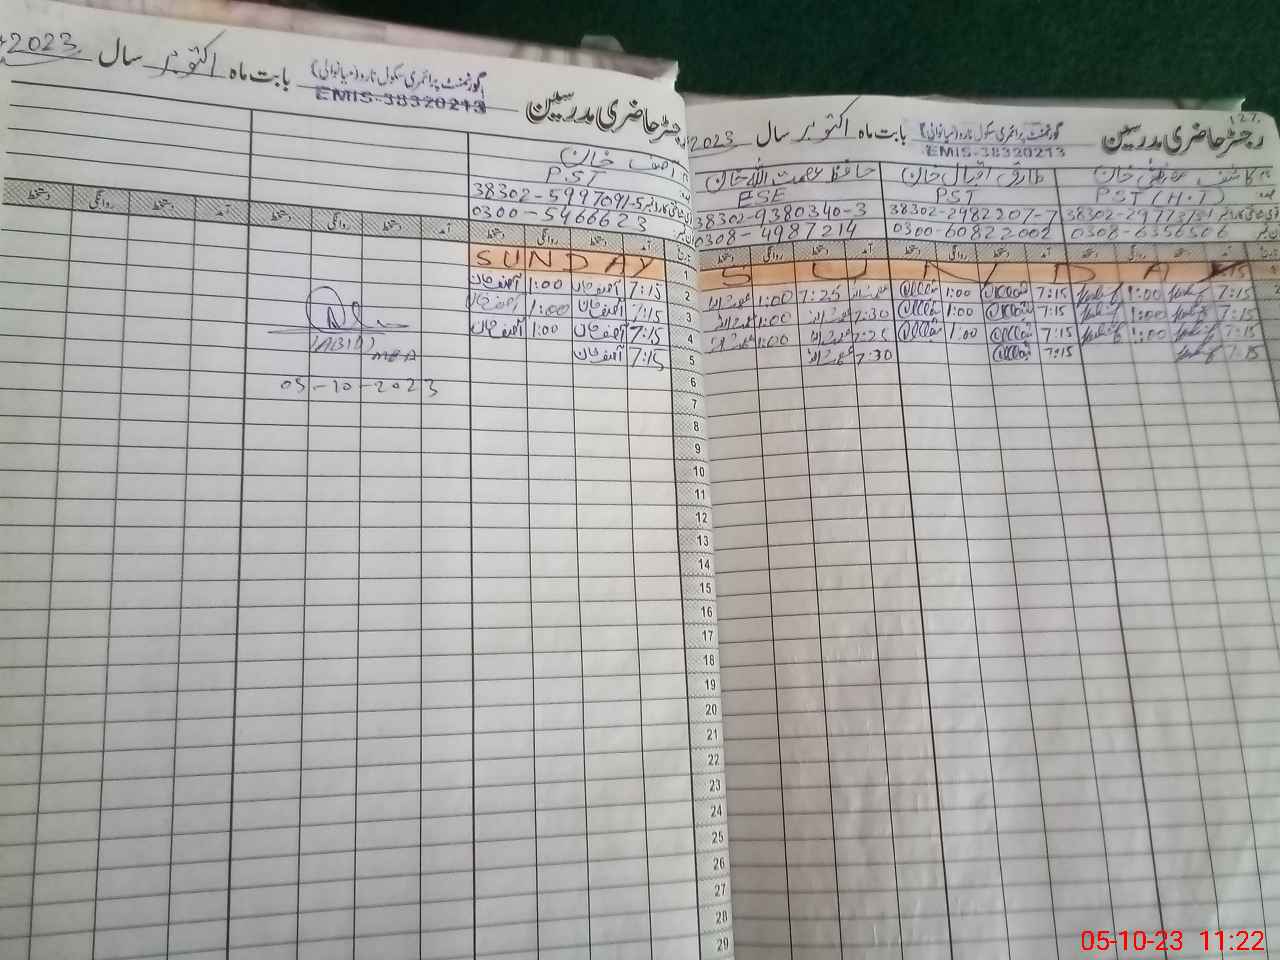 رجسٹر حاضری مدرسین گورنمنٹ پرائمری سکول نارو (میانوالی) بابت ماہ اکتوبر سال 2023
EMIS-38320213
آصف خان
PST
38302-5997091-5
0300-5466623
آمد دستخط روانگی دستخط آمد دستخط روانگی دستخط آمد دستخط روانگی دستخط
SUNDAY
7:15 آصف خان 1:00 آصف خان
7:15 آصف خان 1:00 آصف خان
7:15 آصف خان 1:00 آصف خان
7:15 آصف خان
(ABID)
MEA
05-10-2023
127
رجسٹر حاضری مدرسین گورنمنٹ پرائمری سکول نارو (میانوالی) بابت ماہ اکتوبر سال 2023
EMIS-38320213
خان طارق اقبال خان حافظ عصمت اللہ خان
PST (H.T) PST ESE
38302-2982207-7 38302-9380340-3
0308-6356506 0300-60822002 0308-4987214
تاریخ آمد دستخط روانگی دستخط آمد دستخط روانگی دستخط آمد دستخط روانگی دستخط
1 SUNDAY
2 7:15 1:00 7:15 1:00 7:25 1:00
3 7:15 1:00 7:15 1:00 7:30 1:00
4 7:15 1:00 7:15 1:00 7:25 1:00
5 7:15 7:15 7:30
6
7
8
9
10
11
12
13
14
15
16
17
18
19
20
21
22
23
24
25
26
27
28
29
05-10-23 11:22